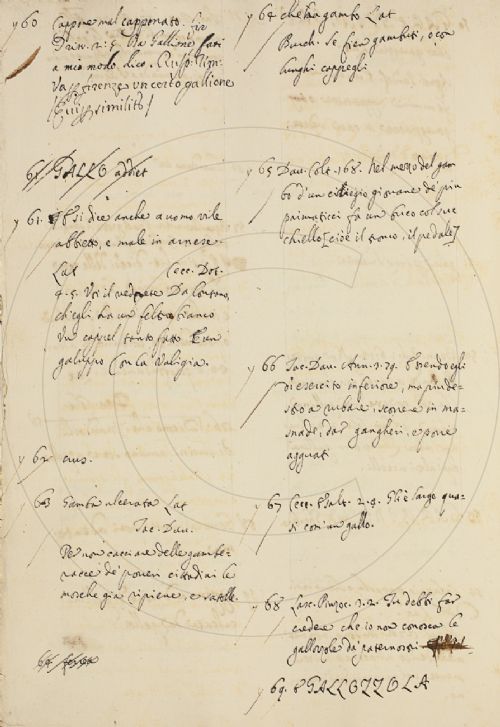 y 60 Cappone mal capponato. Fir
Driu. 2. 5. Ma Gallione fari
a mio modo dico. Rusp. Rim.
Va p Firenze un certo gallione
similit
61. GALLO addiet
y 61. E si dice anche a uomo vile
abbietto, e male in arnese.
Lat Cecc. Dot.
4. 5. Voi il vedrete da lontano,
ch'egli ha un feltro bianco
un cappel tanto fatto E un
galuppo con la valigia.
y 62 eius.
y 63 Gamba ulcerata Lat
Tac. Dav.
Per non cacciare delle gambe-
racce de' poveri cittadini le
mosche già ripiene, e satolle.
64.
y 64 che ha gambo Lat
Burch. Se fien gambuti, o con
lunghi cappegli
y 65 Dav. Colt. 168. Nel mezzo del gam
bo d'un ciliegio giovane de' più
primaticci fa un buco col suc
chiello [cioè il tronco, il pedale]
y 66 Tac. Dav. Ann. 3. 74. Essendo egli
di esercito inferiore, ma più de-
stro a rubare, scorrere in ma-
snade, dar gangheri, e porre
agguati
y 67 Cecc. Esalt. 2. 4. Gli è largo qua-
si com'un gallo.
y 68 Lasc. Pinzoc. 3. 2. Tu debbi far
credere che io non conosca le
gallozzole da' paternostri
y 69. E GALLOZZOLA